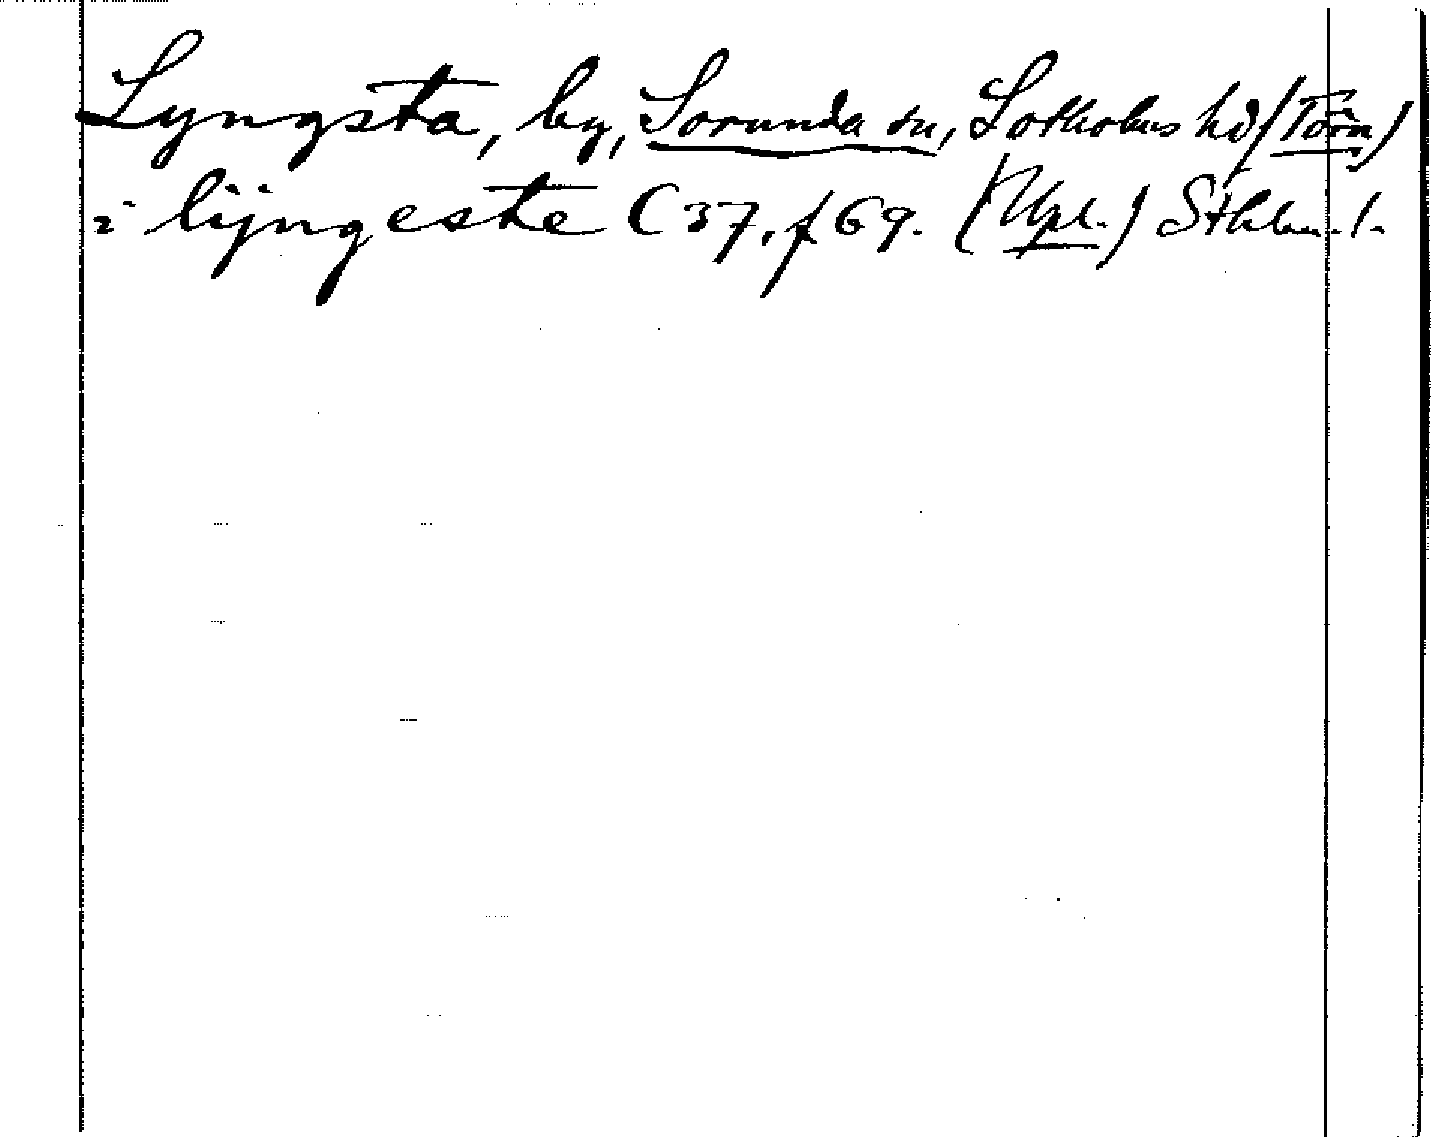 Lyngsta, by, Sorunda sn, Sotholms hd (Törn)
i lijngeste C 37, f 69. (Upl.) Sthlm. l.